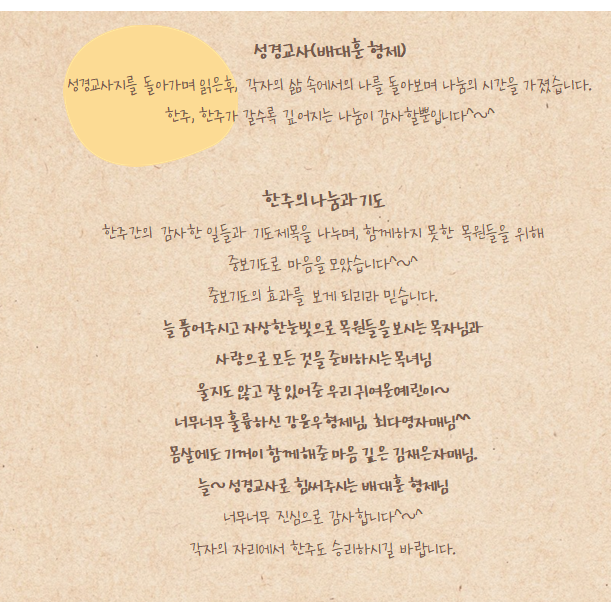 성경교사(배대훈 형제)
성경교사지를 돌아가며 읽은후, 각자의 삶 속에서의 나를 돌아보며 나눔의 시간을 가졌습니다.
한주, 한주가 갈수록 깊어지는 나눔이 감사할뿐입니다^~^
한주의 나눔과 기도
한주간의 감사한 일들과 기도제목을 나누며, 함께하지 못한 목원들을 위해
중보기도로 마음을 모았습니다^~^
중보기도의 효과를 보게 되리라 믿습니다.
늘 품어주시고 자상한눈빛으로 목원들을 보시는 목자님과
사랑으로 모든 것을 준비하시는 목녀님
울지도 않고 잘 있어준 우리 귀여운예린이~
너무너무 훌륭하신 강윤우형제님, 최다영자매님^^
몸살에도 기꺼이 함께 해준 마음 깊은 김재은자매님.
늘~ 성경교사로 힘써주시는 배대훈 형제님
너무너무 진심으로 감사합니다^~^
각자의 자리에서 한주도 승리하시길 바랍니다.